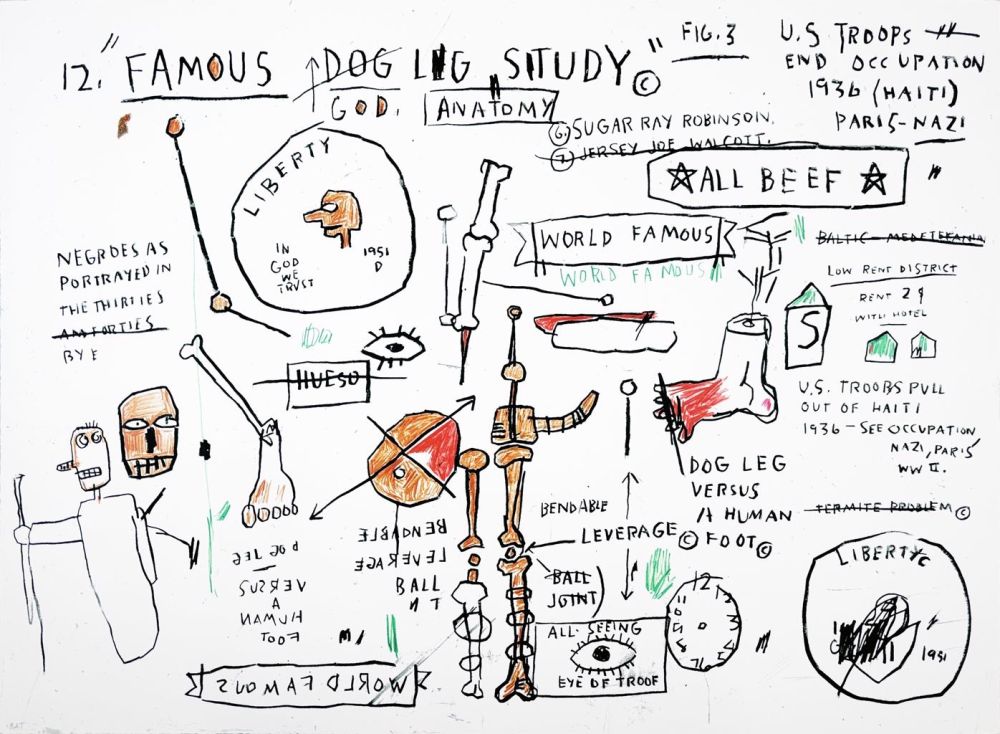 12. "FAMOUS DOG LEG STUDY" ©
GOD. ANATOMY
FIG. 3
U.S TROOPS
END OCCUPATION
1936 (HAITI)
PARIS-NAZI
"
⑥ SUGAR RAY ROBINSON.
⑦ JERSEY JOE WALCOTT.
☆ALL BEEF ☆
LIBERTY
IN
GOD
WE
TRVST
1951
D
WORLD FAMOUS
WORLD FAMOUS
LOW RENT DISTRICT
RENT 2¢
WITH HOTEL
S
NEGROES AS
PORTRAYED IN
THE THIRTIES
AM FORTIES
BY E
HUESO
U.S. TROOPS PULL
OUT OF HAITI
1936-SEE OCCUPATION
NAZI, PARIS
WW II.
TERMITE PROBLEM ©
DOG LEG
VERSUS
A HUMAN
FOOT ©
BENDABLE
LEVERAGE ©
BALL
JOINT)
BENDABLE
LEVERAGE
BALL
N T
DOG LEG
VERSUS
A
HUMAN
FOOT
ALL-SEEING
EYE OF TROOF
12
LIBERTY
1951
WORLD FAMOUS